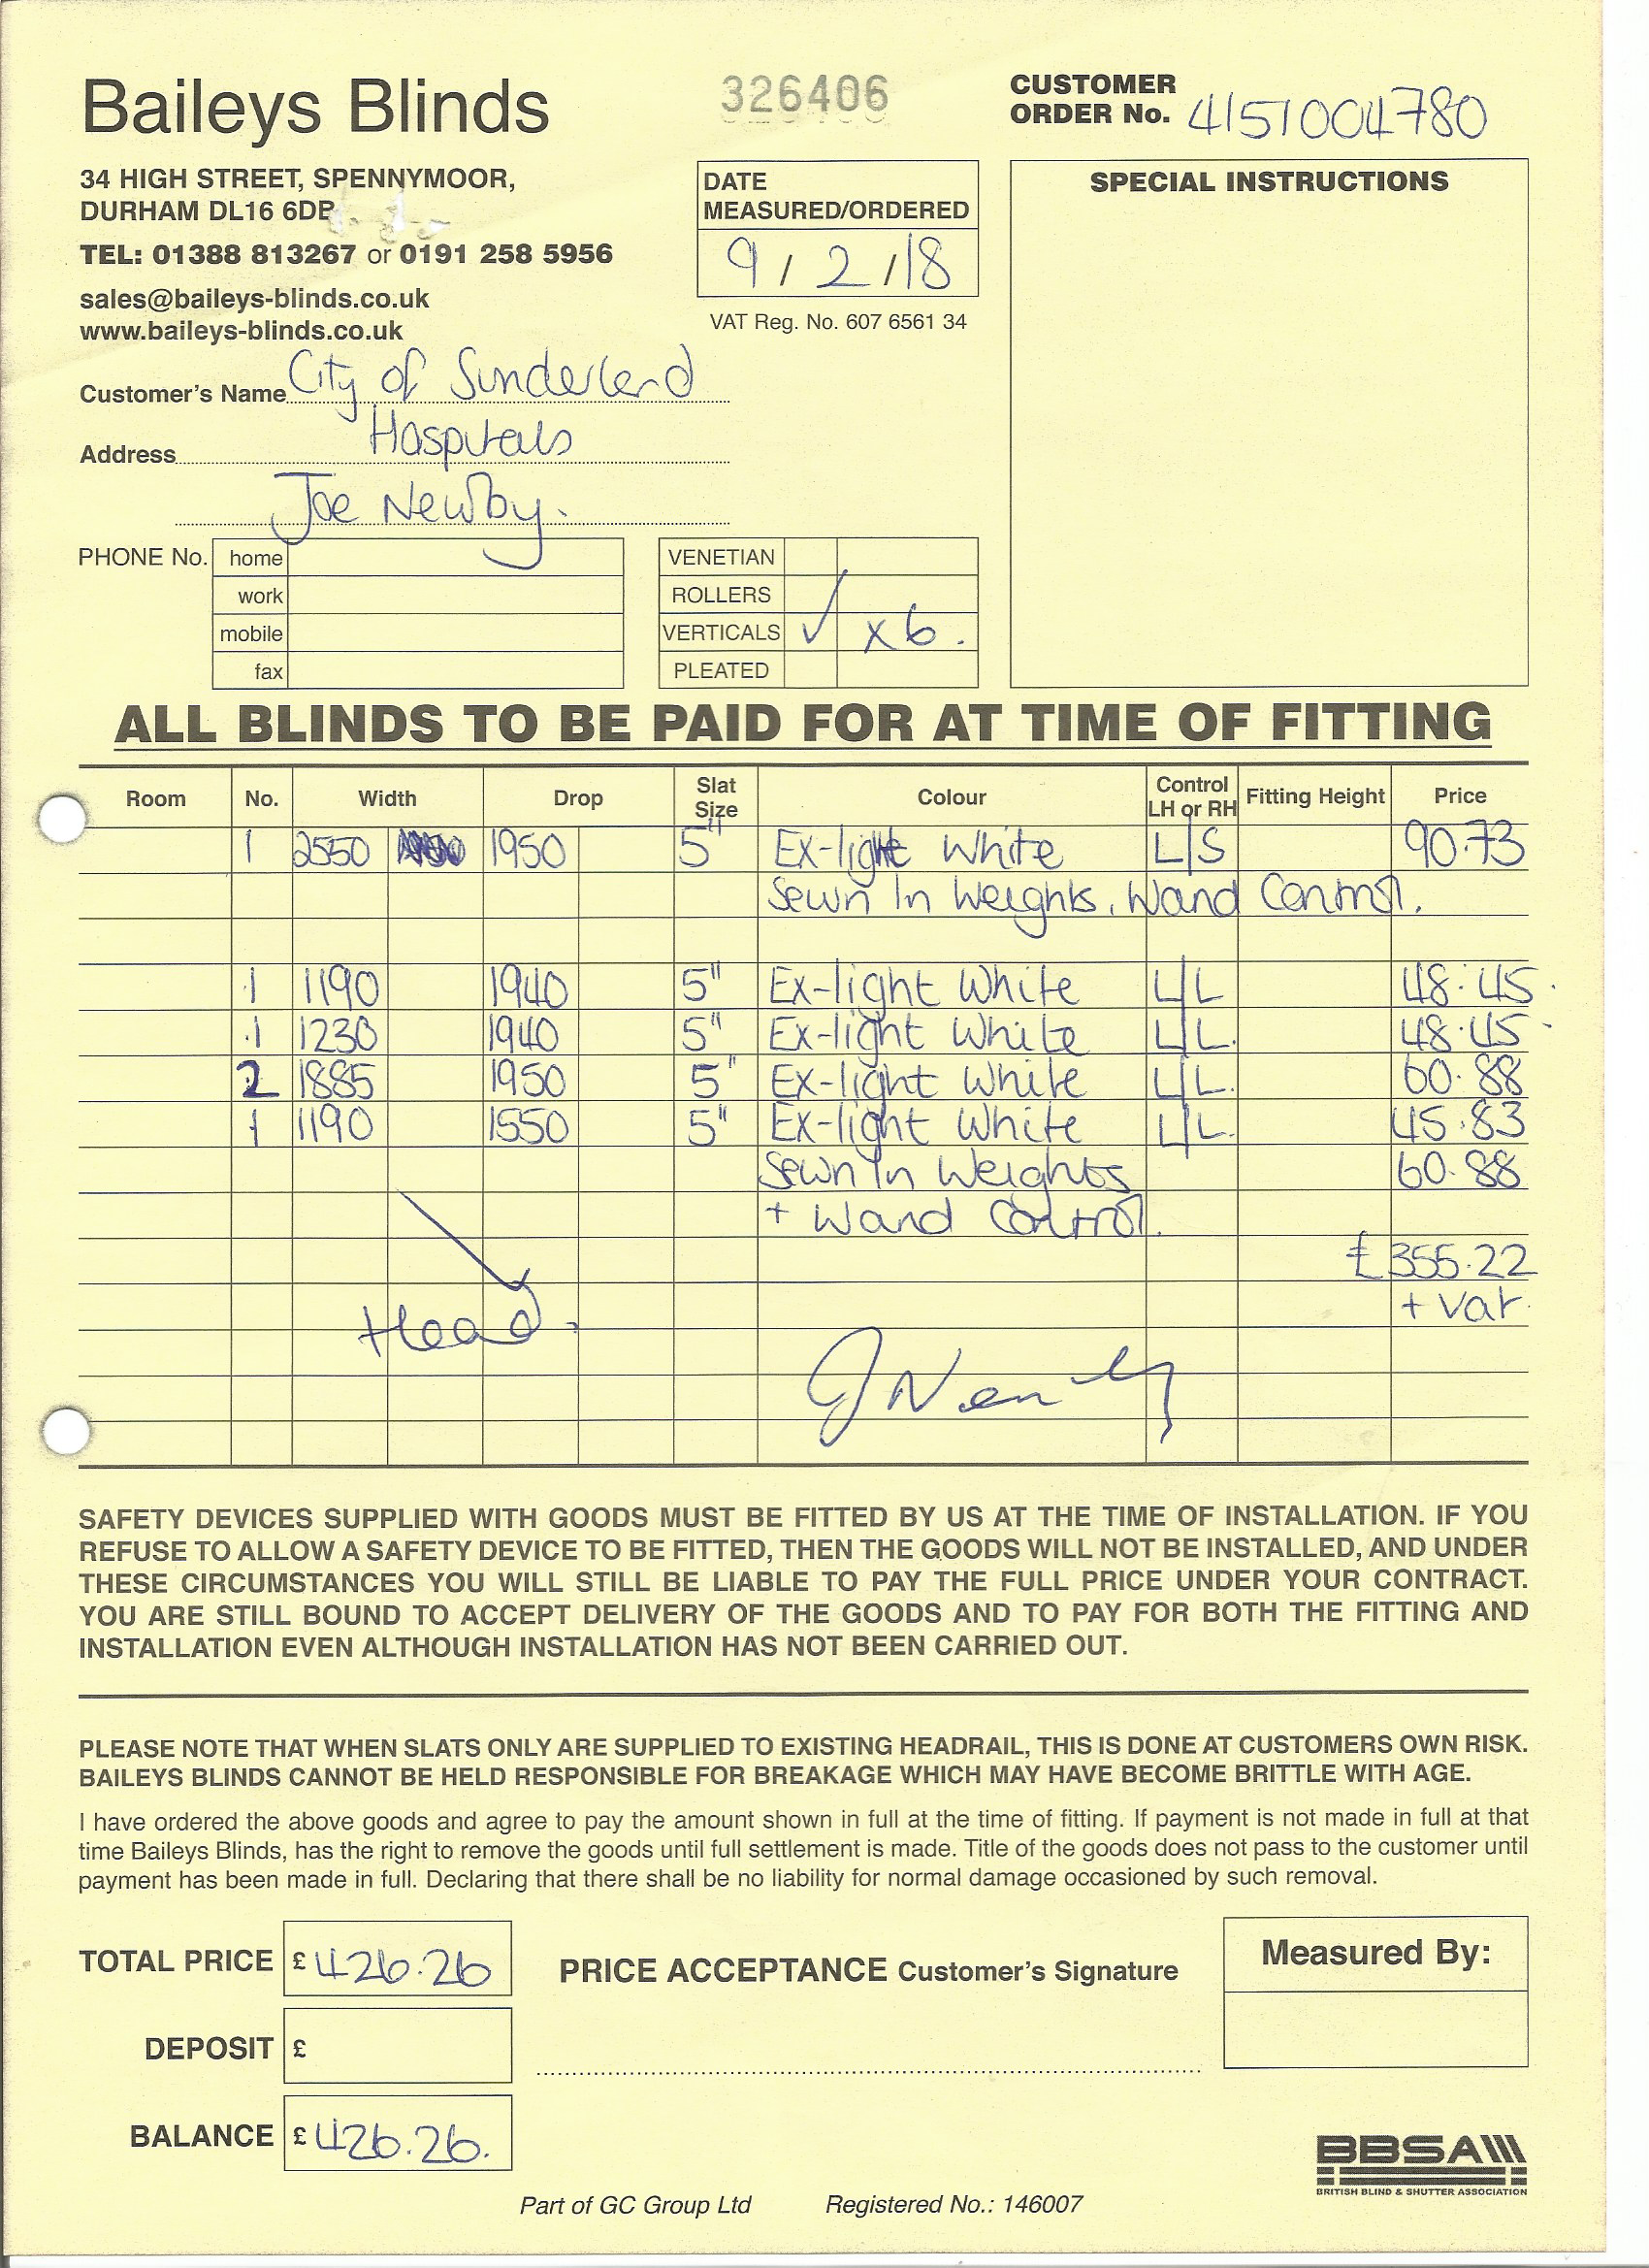 Baileys Blinds
326406
CUSTOMER
ORDER No. 4151004780
34 HIGH STREET, SPENNYMOOR,
DURHAM DL16 6DB
TEL: 01388 813267 or 0191 258 5956
sales@baileys-blinds.co.uk
www.baileys-blinds.co.uk
DATE
MEASURED/ORDERED
9 / 2 / 18
VAT Reg. No. 607 6561 34
SPECIAL INSTRUCTIONS
Customer's Name City of Sunderland
Address Hospitals
Joe Newby.
PHONE No. home
work
mobile
fax
VENETIAN
ROLLERS
VERTICALS ✓ x 6.
PLEATED
ALL BLINDS TO BE PAID FOR AT TIME OF FITTING
Room No. Width Drop Slat Size Colour Control LH or RH Fitting Height Price
1 2550 1950 5" Ex-light White L/S 90.73
Sewn In Weights, Wand Control.
1 1190 1940 5" Ex-light White L/L 48.45
1 1230 1940 5" Ex-light White L/L. 48.45
2 1885 1950 5" Ex-light White L/L. 60.88
1 1190 1550 5" Ex-light White L/L. 45.83
Sewn In Weights 60.88
+ Wand Control.
£355.22
+ Vat.
Head.
SAFETY DEVICES SUPPLIED WITH GOODS MUST BE FITTED BY US AT THE TIME OF INSTALLATION. IF YOU
REFUSE TO ALLOW A SAFETY DEVICE TO BE FITTED, THEN THE GOODS WILL NOT BE INSTALLED, AND UNDER
THESE CIRCUMSTANCES YOU WILL STILL BE LIABLE TO PAY THE FULL PRICE UNDER YOUR CONTRACT.
YOU ARE STILL BOUND TO ACCEPT DELIVERY OF THE GOODS AND TO PAY FOR BOTH THE FITTING AND
INSTALLATION EVEN ALTHOUGH INSTALLATION HAS NOT BEEN CARRIED OUT.
PLEASE NOTE THAT WHEN SLATS ONLY ARE SUPPLIED TO EXISTING HEADRAIL, THIS IS DONE AT CUSTOMERS OWN RISK.
BAILEYS BLINDS CANNOT BE HELD RESPONSIBLE FOR BREAKAGE WHICH MAY HAVE BECOME BRITTLE WITH AGE.
I have ordered the above goods and agree to pay the amount shown in full at the time of fitting. If payment is not made in full at that
time Baileys Blinds, has the right to remove the goods until full settlement is made. Title of the goods does not pass to the customer until
payment has been made in full. Declaring that there shall be no liability for normal damage occasioned by such removal.
TOTAL PRICE £426.26
PRICE ACCEPTANCE Customer's Signature
Measured By:
DEPOSIT £
BALANCE £426.26.
BBSA
BRITISH BLIND & SHUTTER ASSOCIATION
Part of GC Group Ltd Registered No.: 146007